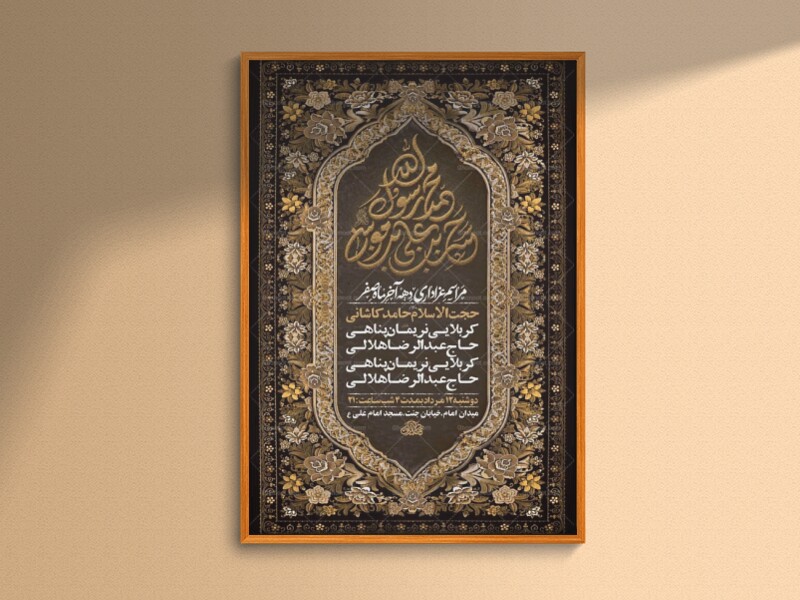 محمد رسول الله
حسن بن علی
علی بن موسی
مراسم عزاداری دهه آخر ماه صفر
حجت الاسلام حامد کاشانی
کربلایی نریمان پناهی
حاج عبدالرضا هلالی
کربلایی نریمان پناهی
حاج عبدالرضا هلالی
دوشنبه ۱۲ مرداد بمدت ۲ شب ساعت: ۲۱
میدان امام، خیابان جنت، مسجد امام علی ع